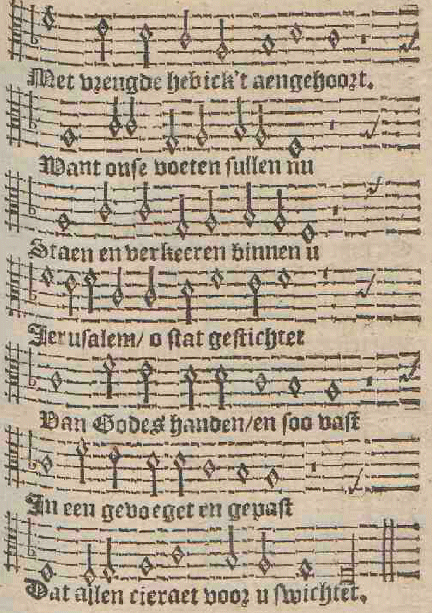 Met vreugde heb ick't aengehoort.
Want onse voeten sullen nu
Staen en verkeeren binnen u
Jerusalem/ o stat gestichtet
Van Godes handen/en soo vast
In een gevoeget en gepast
Dat allen cieraet voor u swichtet.